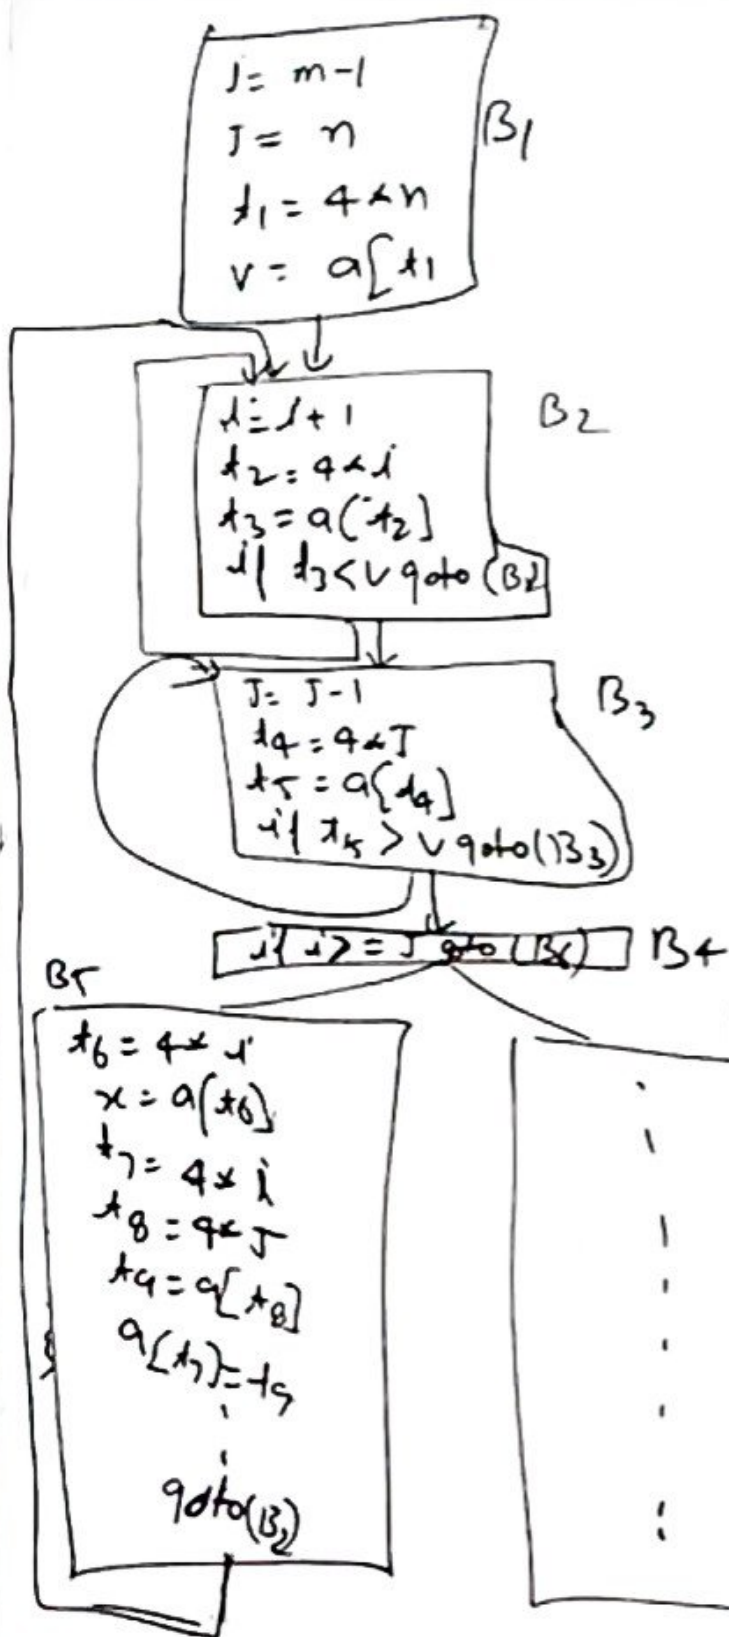 J = m-1
J = n
t1 = 4*n
v = a[t1
B1
i = i+1
t2 = 4*i
t3 = a(t2]
if t3<v goto (B2
B2
J = J-1
t4 = 4*J
t5 = a[t4]
if t5 > v goto(B3)
B3
if i>=J goto (B6)
B4
B5
t6 = 4* i
x = a[t6]
t7 = 4* i
t8 = 4*J
t9 = a[t8]
a[t7] = t9
goto(B2)